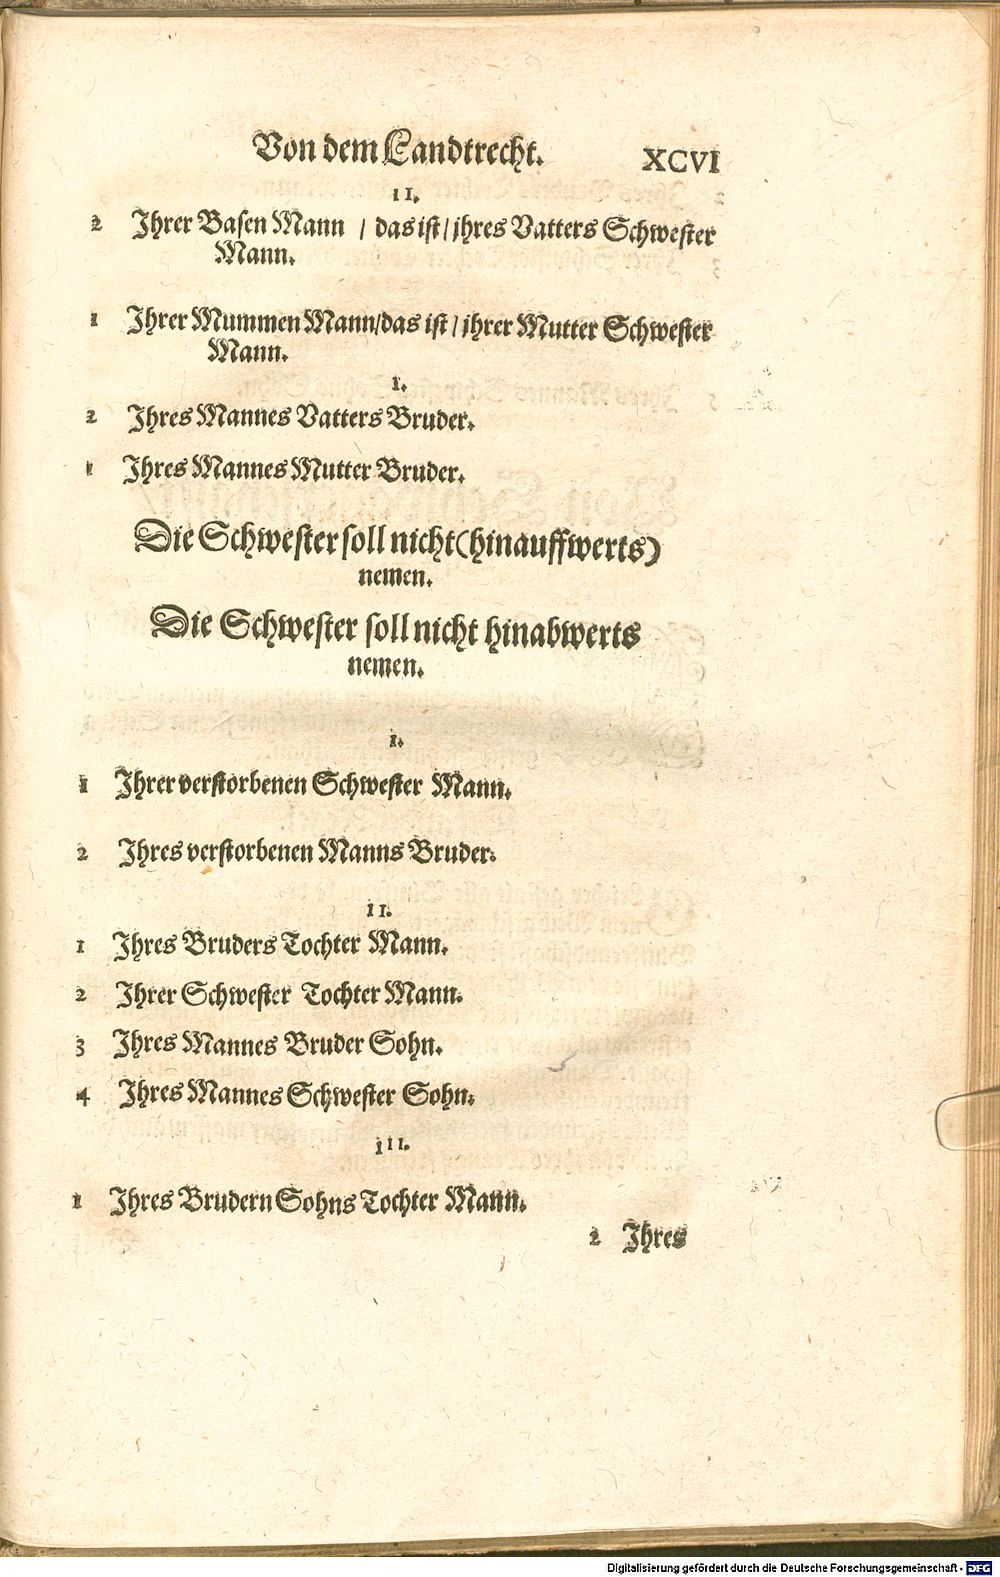 Von dem Landtrecht. XCVI
II.
2 Ihrer Basen Mann / das ist / jhres Vatters Schwester
Mann.
1 Ihrer Mummen Mann/das ist / jhrer Mutter Schwester
Mann.
I.
2 Ihres Mannes Vatters Bruder.
1 Ihres Mannes Mutter Bruder.
Die Schwester soll nicht (hinauffwerts)
nemen.
Die Schwester soll nicht hinabwerts
nemen.
I.
1 Ihrer verstorbenen Schwester Mann.
2 Ihres verstorbenen Manns Bruder.
II.
1 Ihres Bruders Tochter Mann.
2 Ihrer Schwester Tochter Mann.
3 Ihres Mannes Bruder Sohn.
4 Ihres Mannes Schwester Sohn.
III.
1 Ihres Brudern Sohns Tochter Mann.
2 Ihres
Digitalisierung gefördert durch die Deutsche Forschungsgemeinschaft - DFG